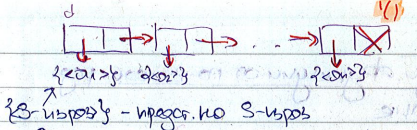 {<a₁>} {<a₂>} ... {<aₙ>}
{S-израз} - предст. на S-израз